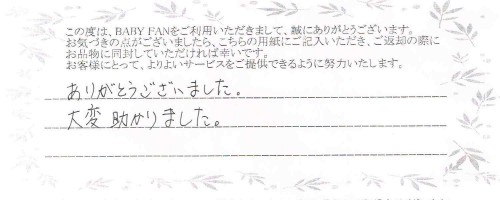 この度は、BABY FANをご利用いただきまして、誠にありがとうございます。
お気づきの点がございましたら、こちらの用紙にご記入いただき、ご返却の際に
お品物に同封していただければ幸いです。
お客様にとって、よりよいサービスをご提供できるように努力いたします。
ありがとうございました。
大変助かりました。